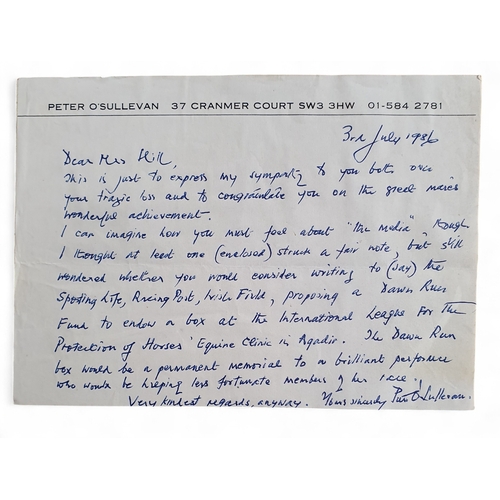 PETER O'SULLEVAN 37 CRANMER COURT SW3 3HW 01-584 2781
3rd July 1986
Dear Mrs Hill,
This is just to express my sympathy to you both over
your tragic loss and to congratulate you on the great mare's
wonderful achievement.
I can imagine how you must feel about "the media", though
I thought at least one (enclosed) struck a fair note, but still
wondered whether you would consider writing to (say) the
Sporting Life, Racing Post, Irish Field, proposing a Dawn Run
Fund to endow a box at the International League For The
Protection of Horses' Equine Clinic in Agadir. The Dawn Run
box would be a permanent memorial to a brilliant performer
who would be helping less fortunate members of her race!
Very kindest regards, anyway. Yours sincerely Peter O'Sullevan.